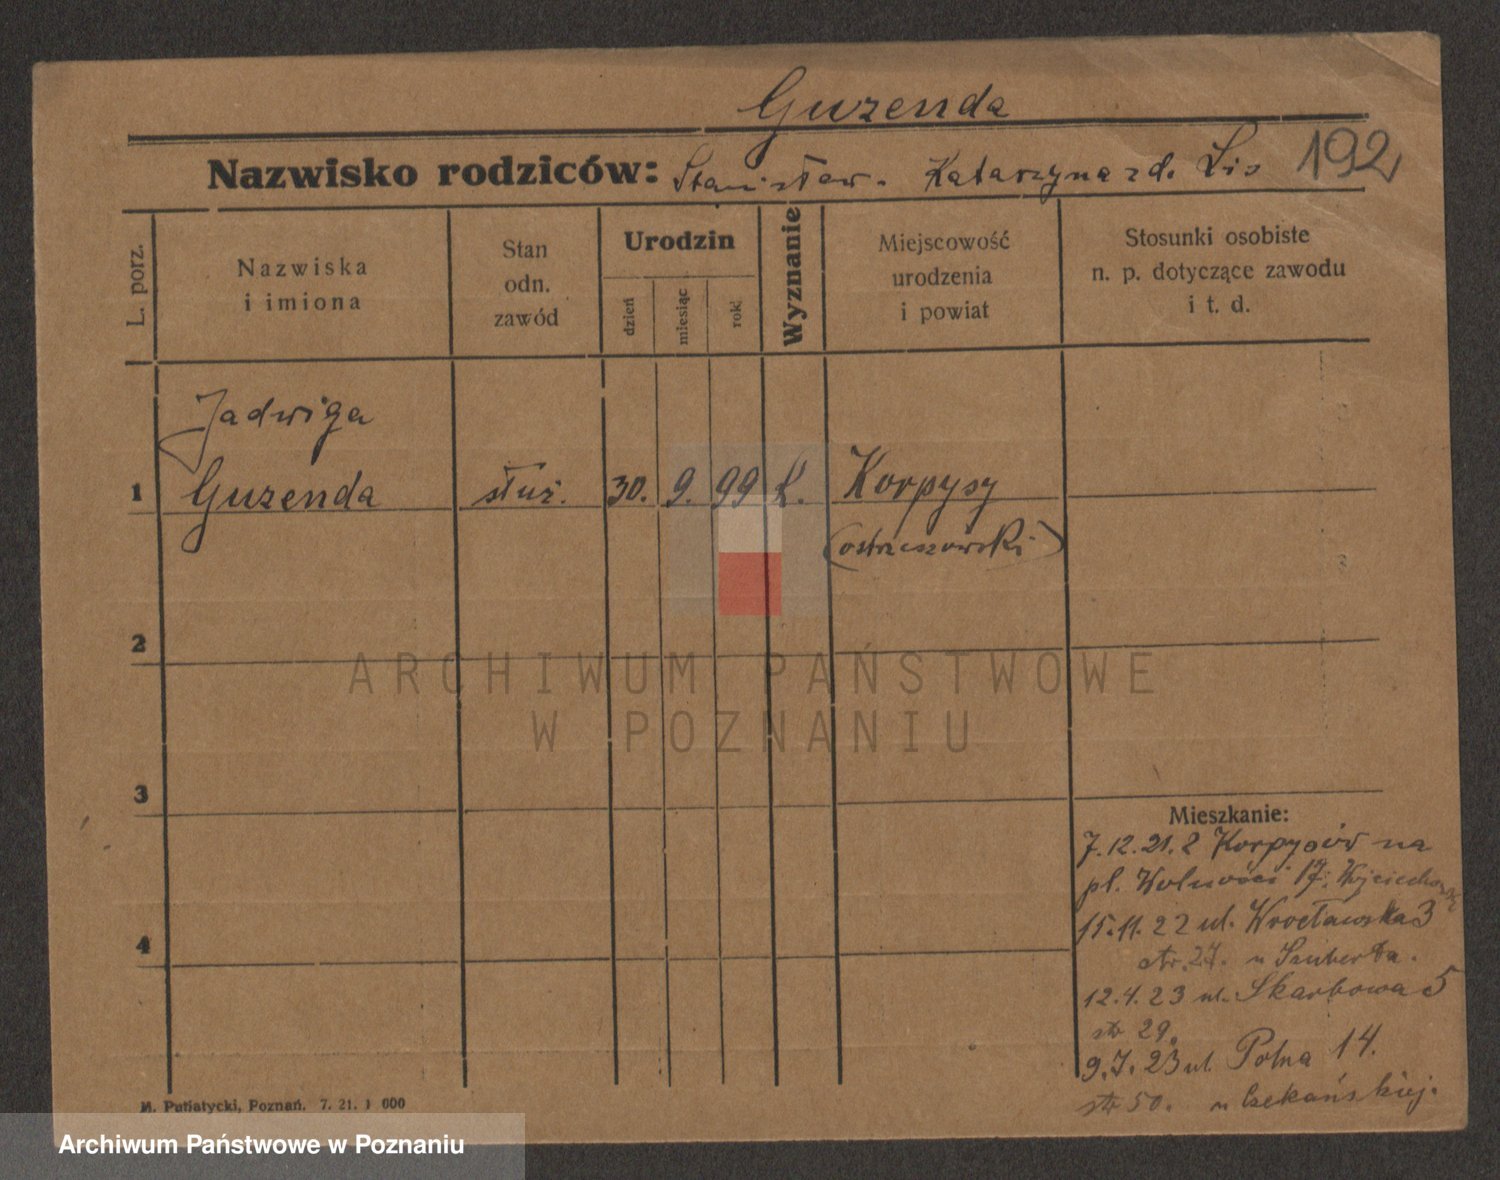 Guzenda
Nazwisko rodziców: Stanisław. Katarzyna zd. Lis 192
L. porz.
Nazwiska
i imiona
Stan
odn.
zawód
Urodzin
dzień
miesiąc
rok
Wyznanie
Miejscowość
urodzenia
i powiat
Stosunki osobiste
n. p. dotyczące zawodu
i t. d.
Jadwiga
1 Guzenda służ. 30. 9. 99 k. Korpysy
(ostrzeszowski)
2
ARCHIWUM PAŃSTWOWE
W POZNANIU
3
Mieszkanie:
7.12.21. z Korpysów na
pl. Wolności 17.
15.11.22 ul. Wrocławska 3
str. 27. u Szuberta.
4
12.4.23 ul. Skarbowa 5
str 29.
9.7.23 ul. Polna 14.
str 50. u Czekańskiej.
M. Putiatycki, Poznań. 7. 21. 1 000
Archiwum Państwowe w Poznaniu